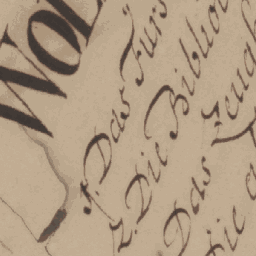 WOL
1. Das Fürs
2. Die Biblio
Das Zeugh
Die a